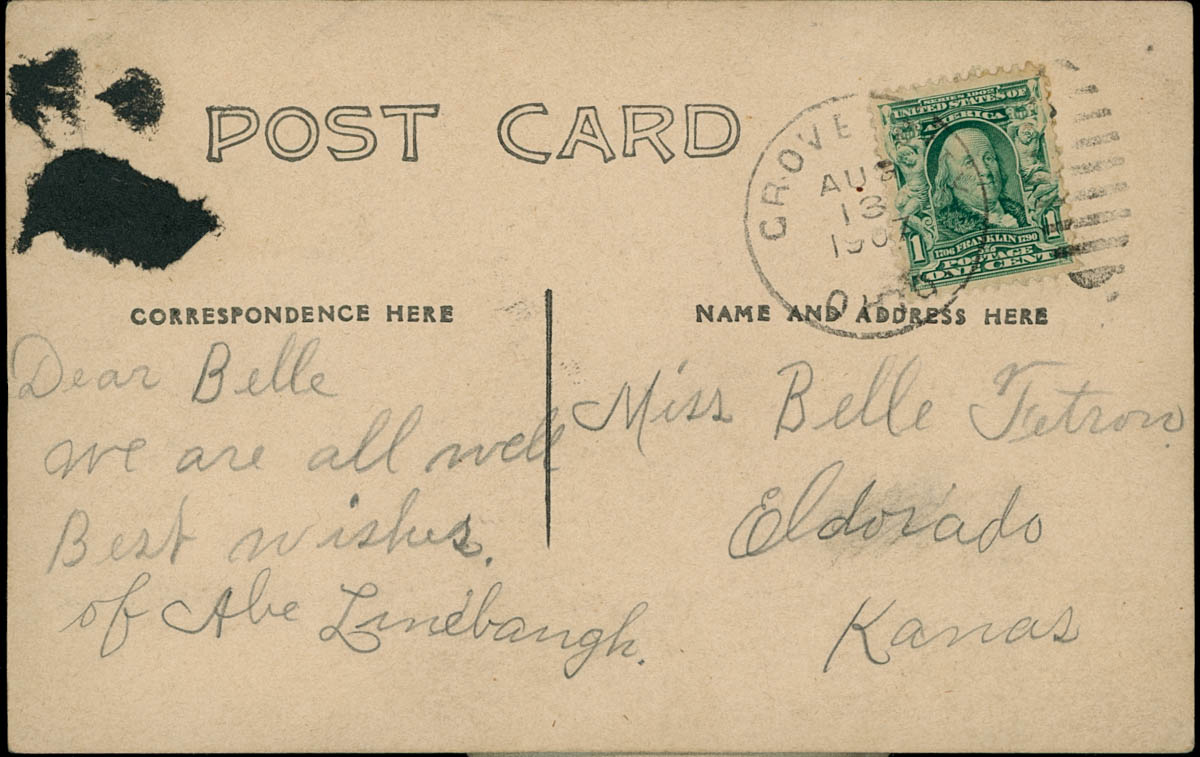 POST CARD
GROVE
AUG
13
190
OHIO
SERIES 1902
UNITED STATES OF
AMERICA
1706 FRANKLIN 1790
1 1
POSTAGE
ONE CENT
CORRESPONDENCE HERE
NAME AND ADDRESS HERE
Dear Belle
we are all well
Best wishes.
of Abe Linebaugh.
Miss Belle Fetrow
Eldorado
Kanas